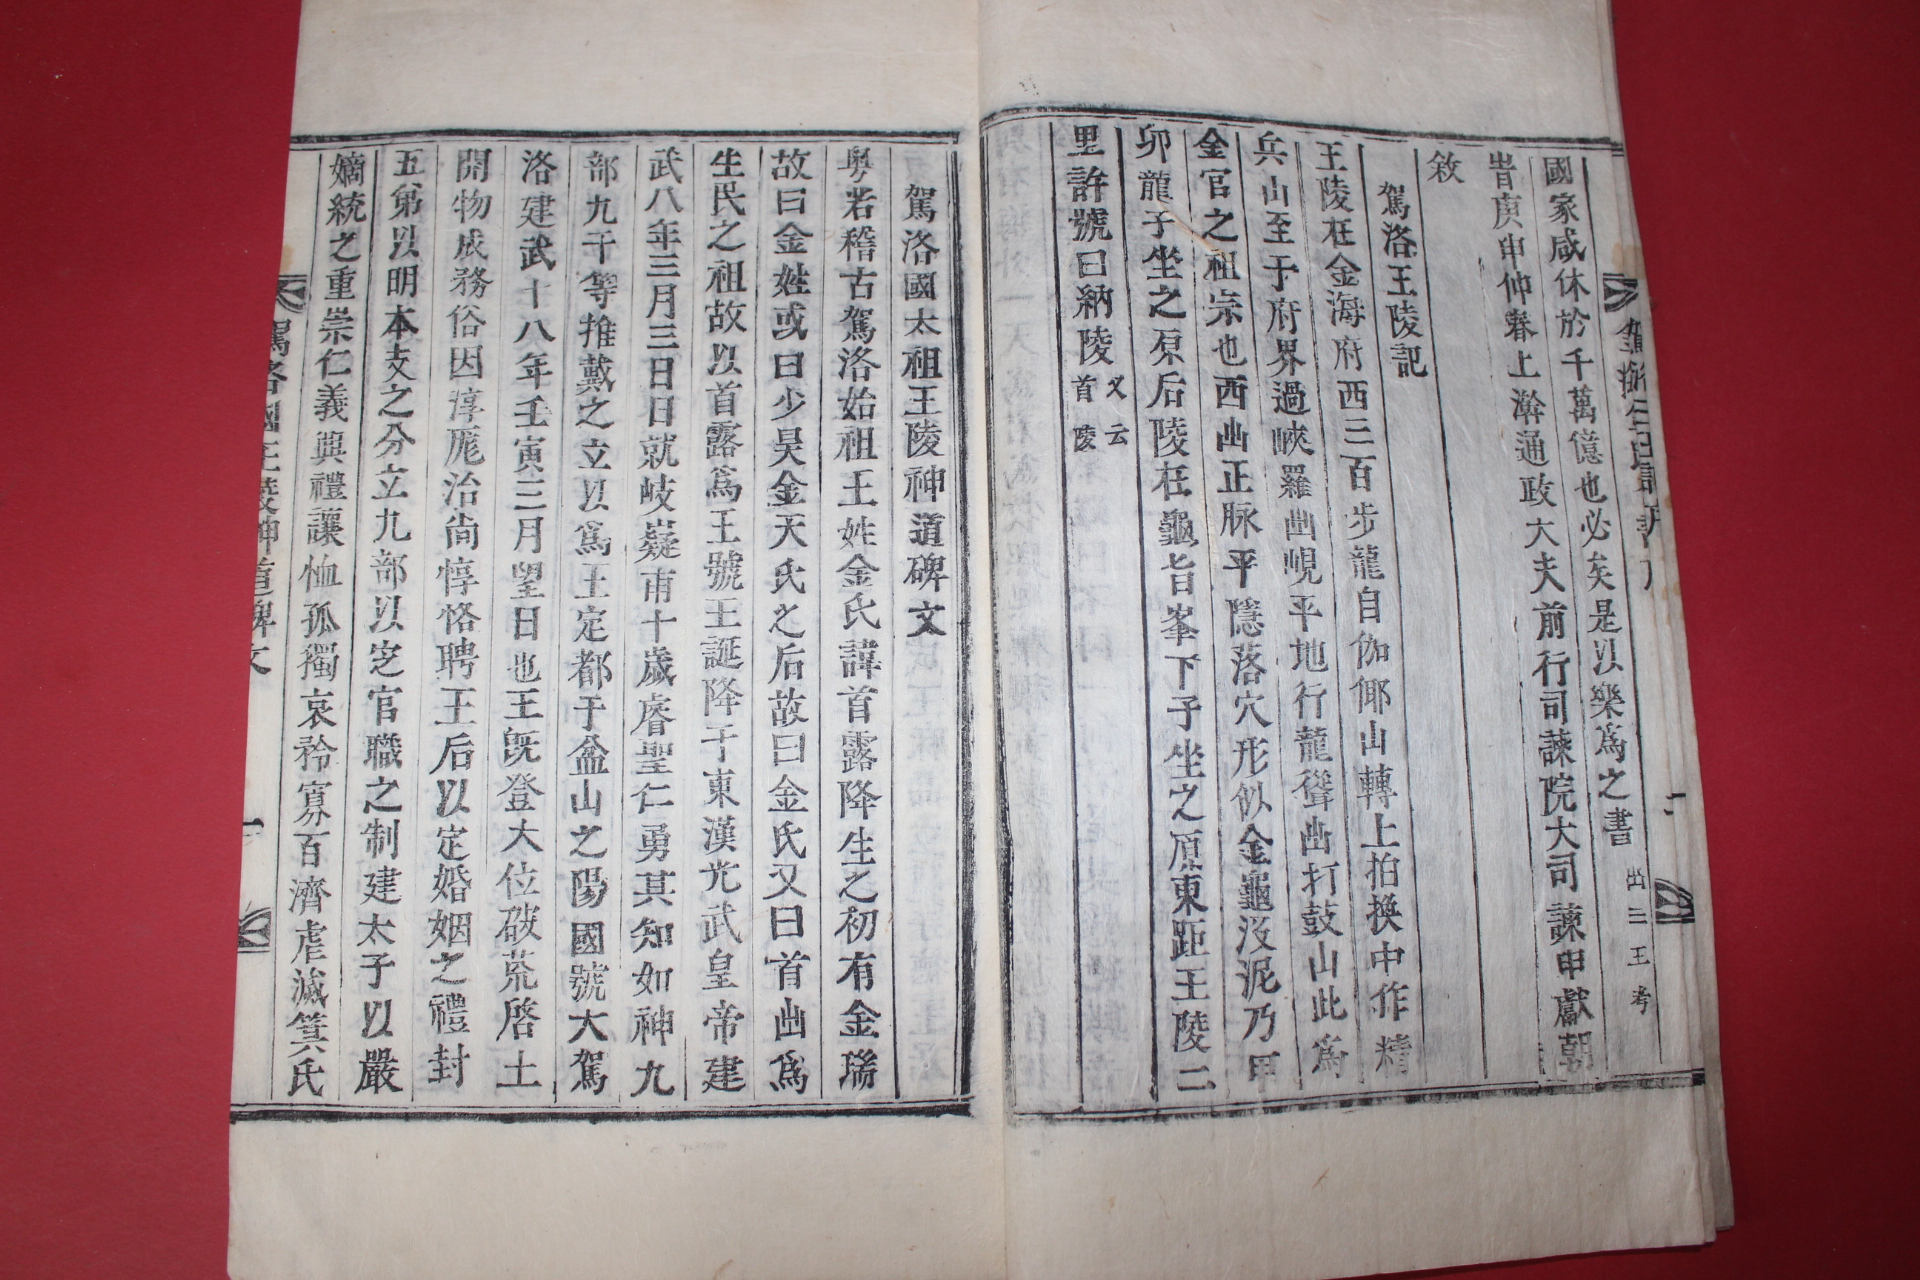 國家咸休於千萬億也必矣是以樂爲之書 出三王考
旹庚申仲春上澣通政大夫前行司諫院大司諫申獻朝
敘
駕洛王陵記
王陵在金海府西三百步龍自伽倻山轉上拍換中作精
兵山至于府界過峽羅出峴平地行龍聳出打鼓山此爲
金官之祖宗也西出正脉平隱落穴形似金龜沒泥乃甲
卯龍子坐之原后陵在龜旨峯下子坐之原東距王陵二
里許號曰納陵 又云首陵
駕洛國太祖王陵神道碑文
粤若稽古駕洛始祖王姓金氏諱首露降生之初有金瑞
故曰金姓或曰少昊金天氏之后故曰金氏又曰首出爲
生民之祖故以首露爲王號王誕降于東漢光武皇帝建
武八年三月三日日就岐嶷甫十歲睿聖仁勇其知如神九
部九干等推戴之立以爲王定都于盆山之陽國號大駕
洛建武十八年壬寅三月望日也王旣登大位破荒啓土
開物成務俗因淳厖治尙惇恪聘王后以定婚姻之禮封
五弟以明本支之分立九部以定官職之制建太子以嚴
嫡統之重崇仁義興禮讓恤孤獨哀矜寡百濟虐滅箕氏
駕洛國王陵神道碑文 一